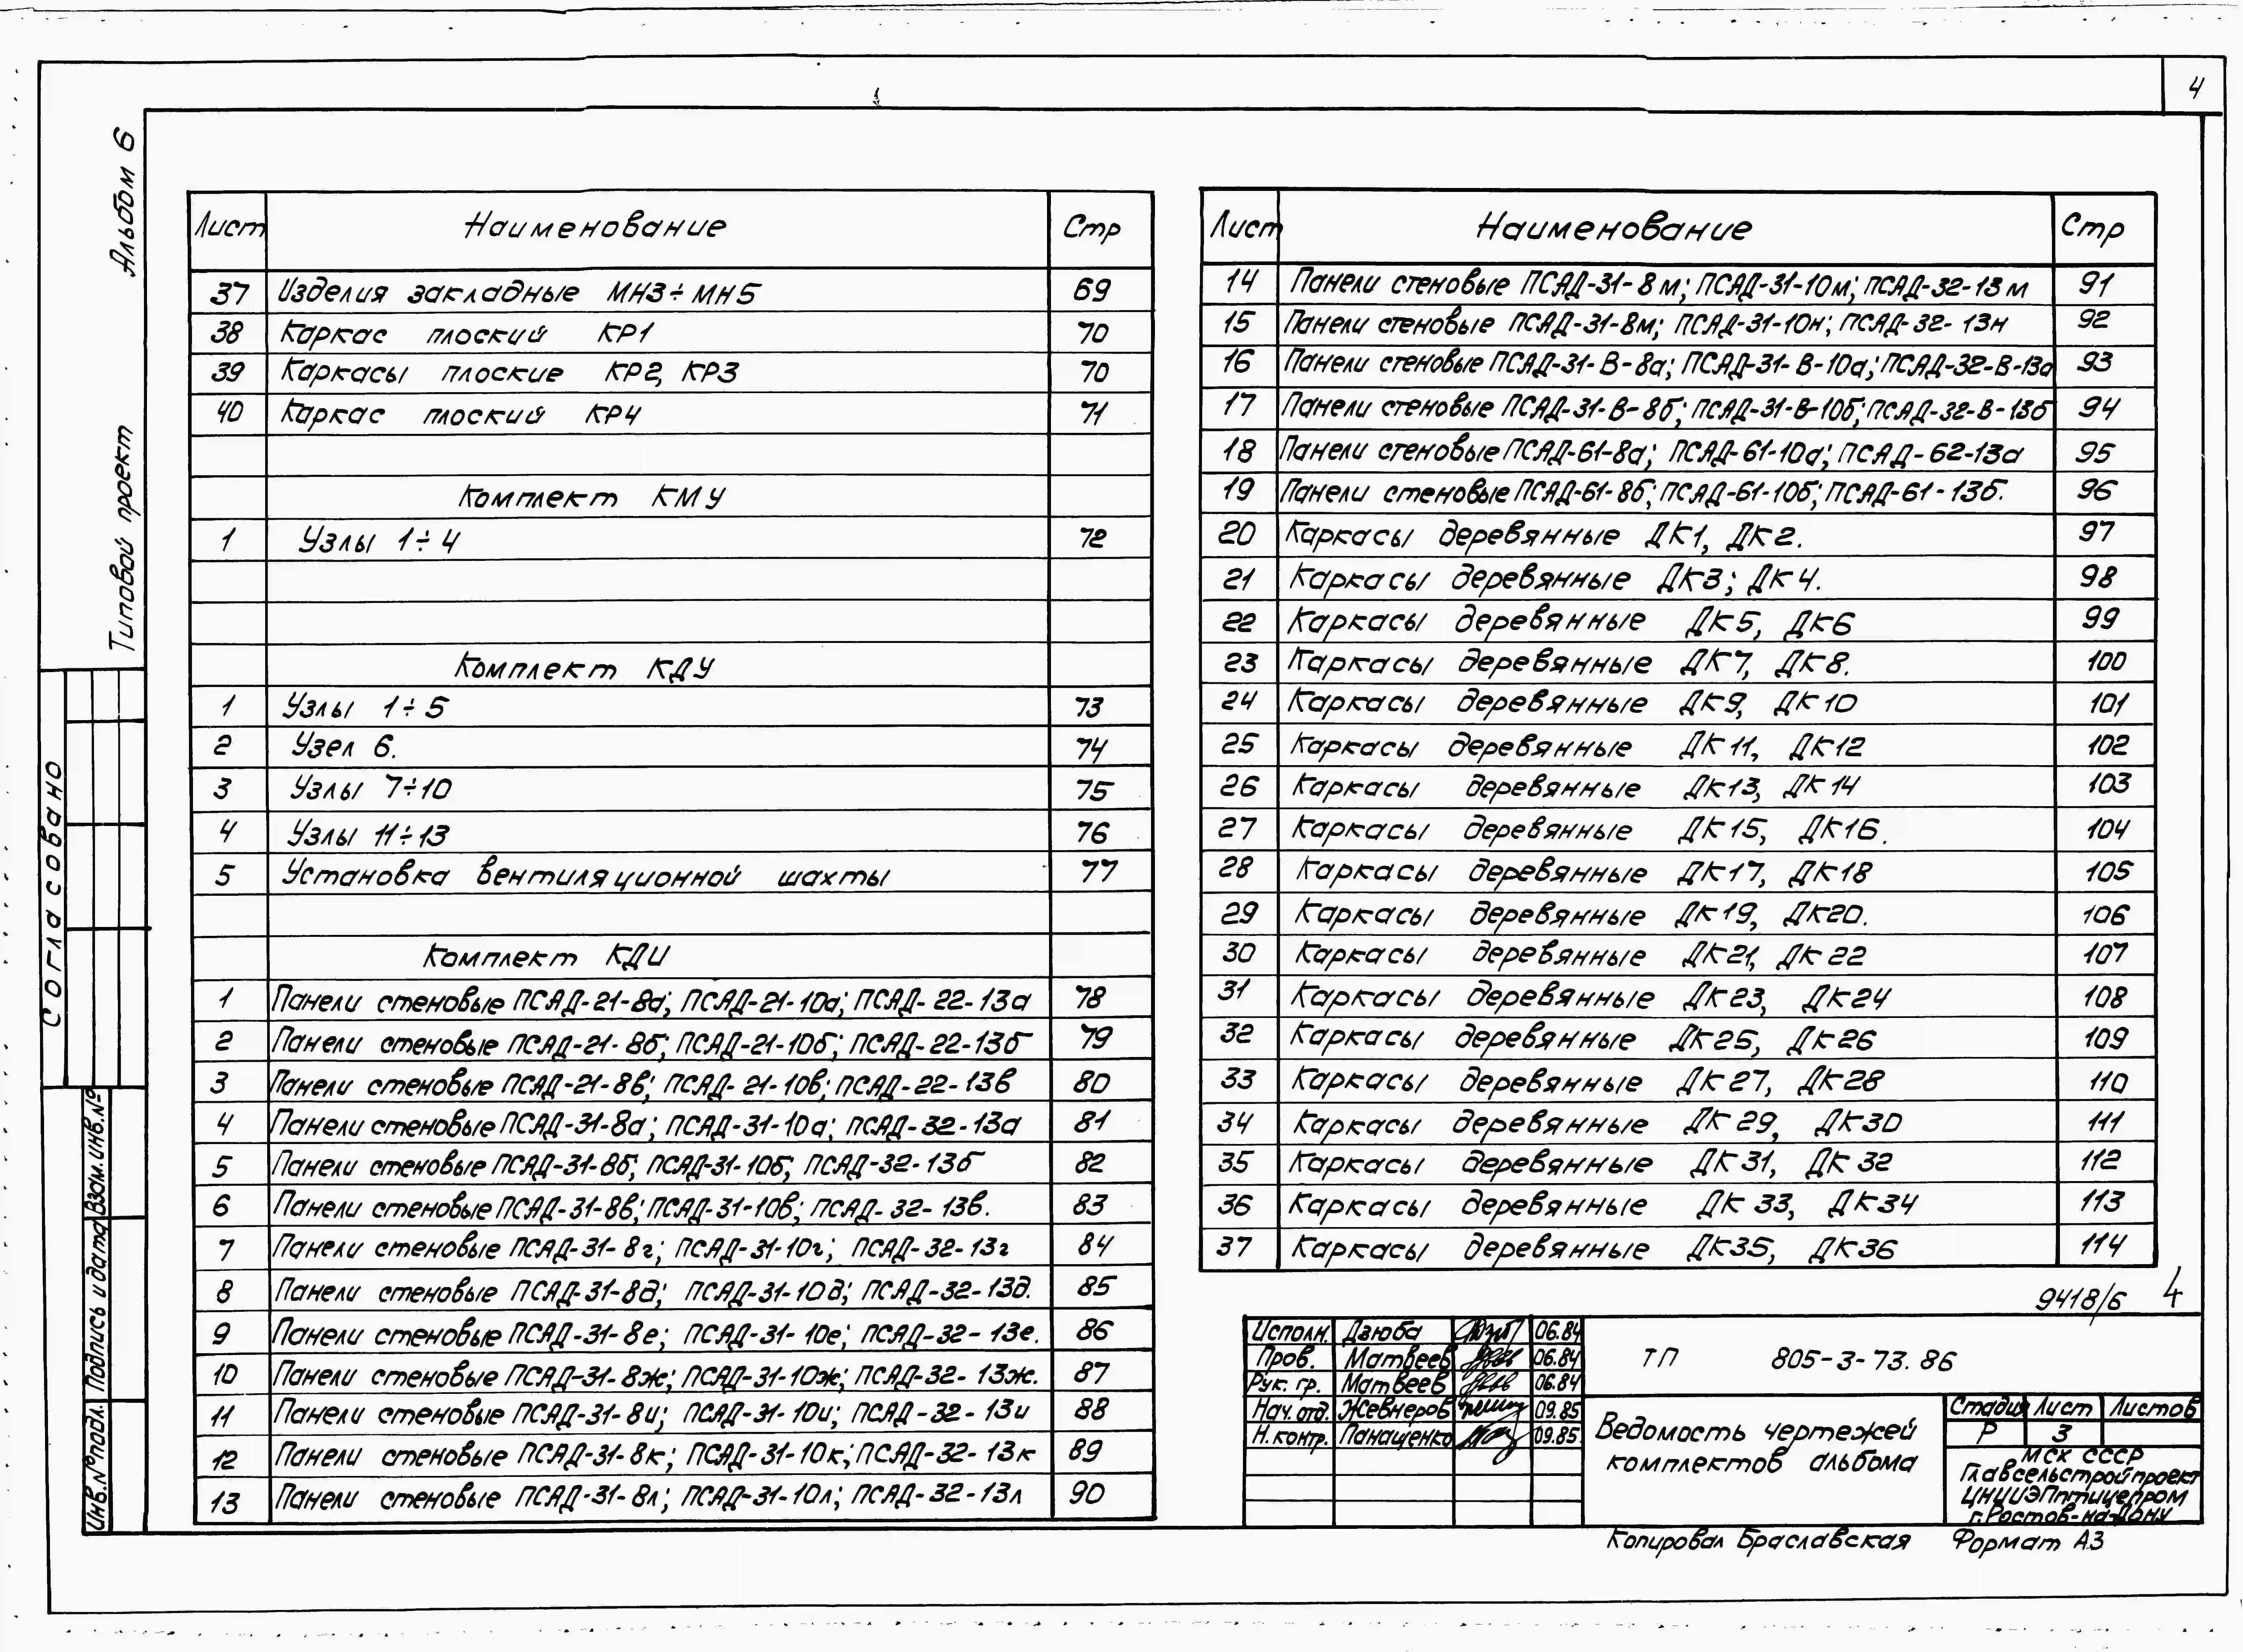 4
Альбом 6
Типовой проект
Согласовано
Взам.инв.№
Подпись и дата
Инв.№подл.
Лист Наименование Стр
37 Изделия закладные МН3÷МН5 69
38 Каркас плоский КР1 70
39 Каркасы плоские КР2, КР3 70
40 Каркас плоский КР4 71
Комплект КМУ
1 Узлы 1÷4 72
Комплект КДУ
1 Узлы 1÷5 73
2 Узел 6. 74
3 Узлы 7÷10 75
4 Узлы 11÷13 76
5 Установка вентиляционной шахты 77
Комплект КДИ
1 Панели стеновые ПСАД-21-8а; ПСАД-21-10а; ПСАД-22-13а 78
2 Панели стеновые ПСАД-21-8б; ПСАД-21-10б; ПСАД-22-13б 79
3 Панели стеновые ПСАД-21-8в; ПСАД-21-10в; ПСАД-22-13в 80
4 Панели стеновые ПСАД-31-8а; ПСАД-31-10а; ПСАД-32-13а 81
5 Панели стеновые ПСАД-31-8б; ПСАД-31-10б; ПСАД-32-13б 82
6 Панели стеновые ПСАД-31-8в; ПСАД-31-10в; ПСАД-32-13в. 83
7 Панели стеновые ПСАД-31-8г; ПСАД-31-10г; ПСАД-32-13г 84
8 Панели стеновые ПСАД-31-8д; ПСАД-31-10д; ПСАД-32-13д. 85
9 Панели стеновые ПСАД-31-8е; ПСАД-31-10е; ПСАД-32-13е. 86
10 Панели стеновые ПСАД-31-8ж; ПСАД-31-10ж; ПСАД-32-13ж. 87
11 Панели стеновые ПСАД-31-8и; ПСАД-31-10и; ПСАД-32-13и 88
12 Панели стеновые ПСАД-31-8к; ПСАД-31-10к; ПСАД-32-13к 89
13 Панели стеновые ПСАД-31-8л; ПСАД-31-10л; ПСАД-32-13л 90
Лист Наименование Стр
14 Панели стеновые ПСАД-31-8м; ПСАД-31-10м; ПСАД-32-13м 91
15 Панели стеновые ПСАД-31-8м; ПСАД-31-10н; ПСАД-32-13н 92
16 Панели стеновые ПСАД-31-В-8а; ПСАД-31-В-10а; ПСАД-32-В-13а 93
17 Панели стеновые ПСАД-31-В-8б; ПСАД-31-В-10б; ПСАД-32-В-13б 94
18 Панели стеновые ПСАД-61-8а; ПСАД-61-10а; ПСАД-62-13а 95
19 Панели стеновые ПСАД-61-8б; ПСАД-61-10б; ПСАД-61-13б. 96
20 Каркасы деревянные ДК1, ДК2. 97
21 Каркасы деревянные ДК3; ДК4. 98
22 Каркасы деревянные ДК5, ДК6 99
23 Каркасы деревянные ДК7, ДК8. 100
24 Каркасы деревянные ДК9, ДК10 101
25 Каркасы деревянные ДК11, ДК12 102
26 Каркасы деревянные ДК13, ДК14 103
27 Каркасы деревянные ДК15, ДК16. 104
28 Каркасы деревянные ДК17, ДК18 105
29 Каркасы деревянные ДК19, ДК20. 106
30 Каркасы деревянные ДК21, ДК22 107
31 Каркасы деревянные ДК23, ДК24 108
32 Каркасы деревянные ДК25, ДК26 109
33 Каркасы деревянные ДК27, ДК28 110
34 Каркасы деревянные ДК29, ДК30 111
35 Каркасы деревянные ДК31, ДК32 112
36 Каркасы деревянные ДК33, ДК34 113
37 Каркасы деревянные ДК35, ДК36 114
9418/6 4
Исполн. Дзюба 06.84
Пров. Матвеев 06.84
Рук. гр. Матвеев 06.84
Нач.отд. Жевнеров 09.85
Н.контр. Панащенко 09.85
ТП 805-3-73.86
Ведомость чертежей
комплектов альбома
Стадия Лист Листов
Р 3
МСХ СССР
Главсельстройпроект
ЦНИИЭПптицепром
г.Ростов-на-Дону
Копировал Браславская Формат А3